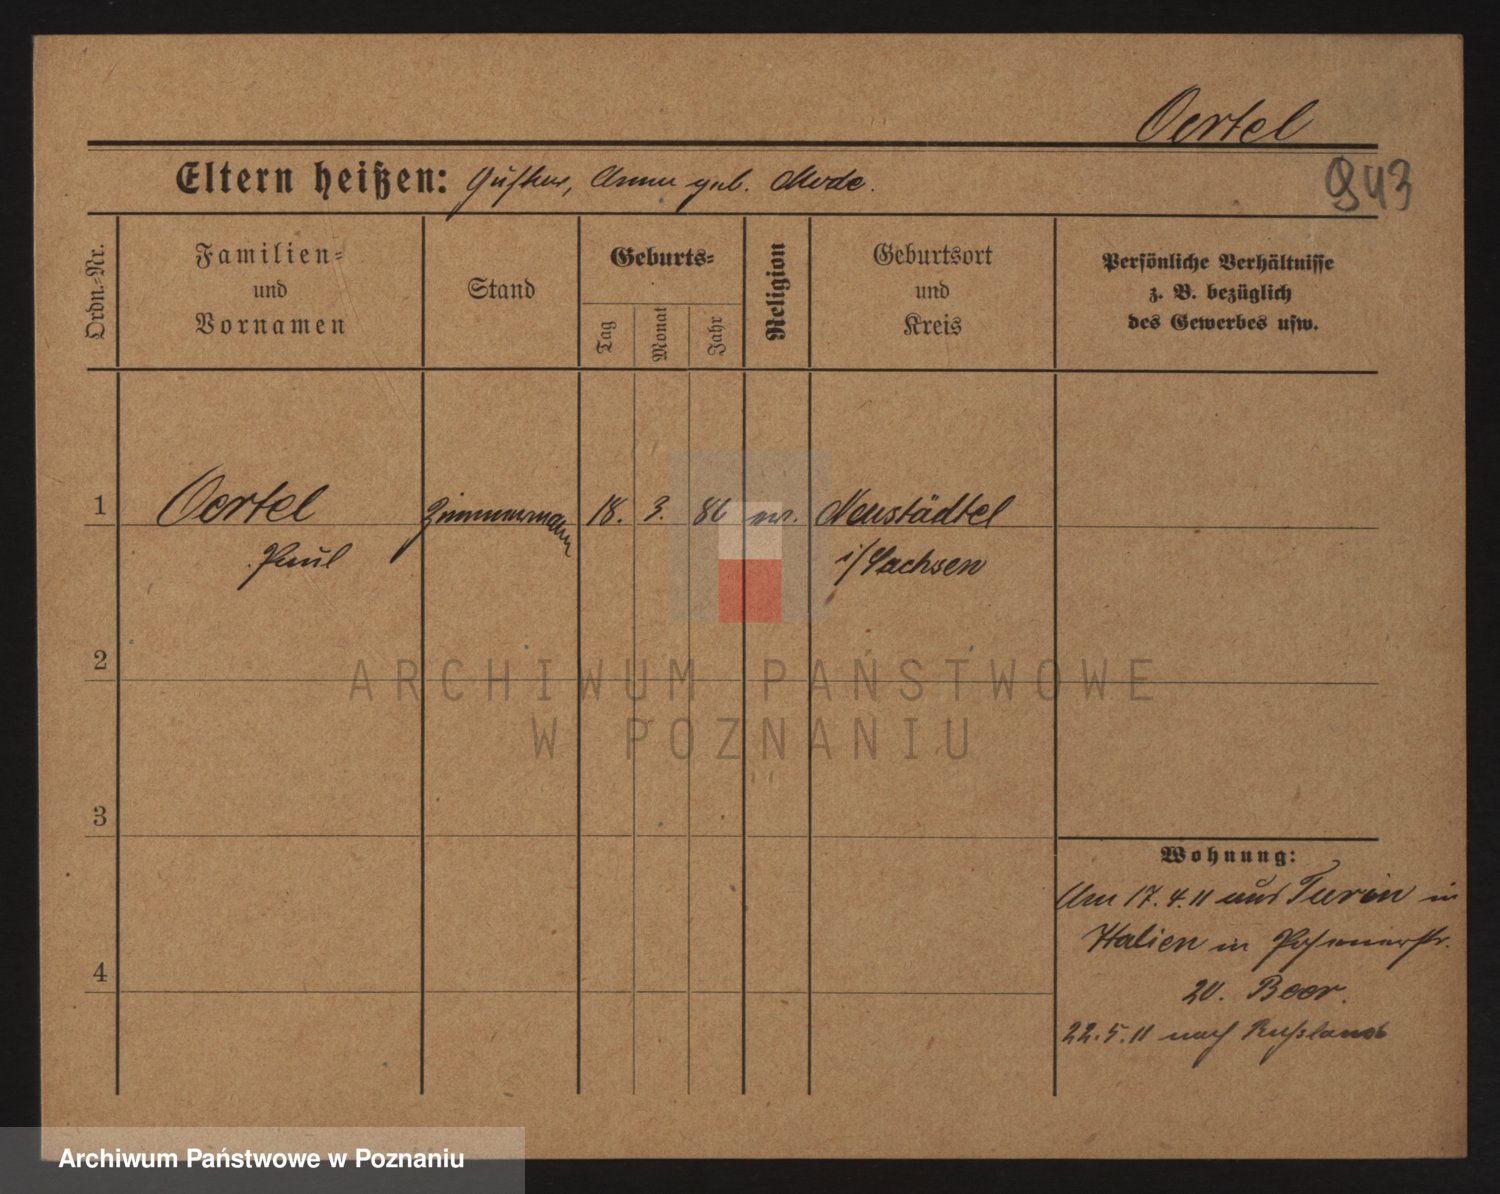 Oertel
Eltern heißen: Gustav, Anna geb. Mode.
943
Ordn.-Nr.
Familien- und Vornamen
Stand
Geburts-
Tag
Monat
Jahr
Religion
Geburtsort und Kreis
Persönliche Verhältnisse
z. B. bezüglich
des Gewerbes usw.
1 Oertel Zimmermann 18. 3. 86 ev. Neustädtel
Paul i/Sachsen
2
3
4
Wohnung:
Am 17.4.11 aus Turin in
Italien in Posenerstr.
20. Beer.
22.5.11 nach Russland
ARCHIWUM PAŃSTWOWE
W POZNANIU
Archiwum Państwowe w Poznaniu